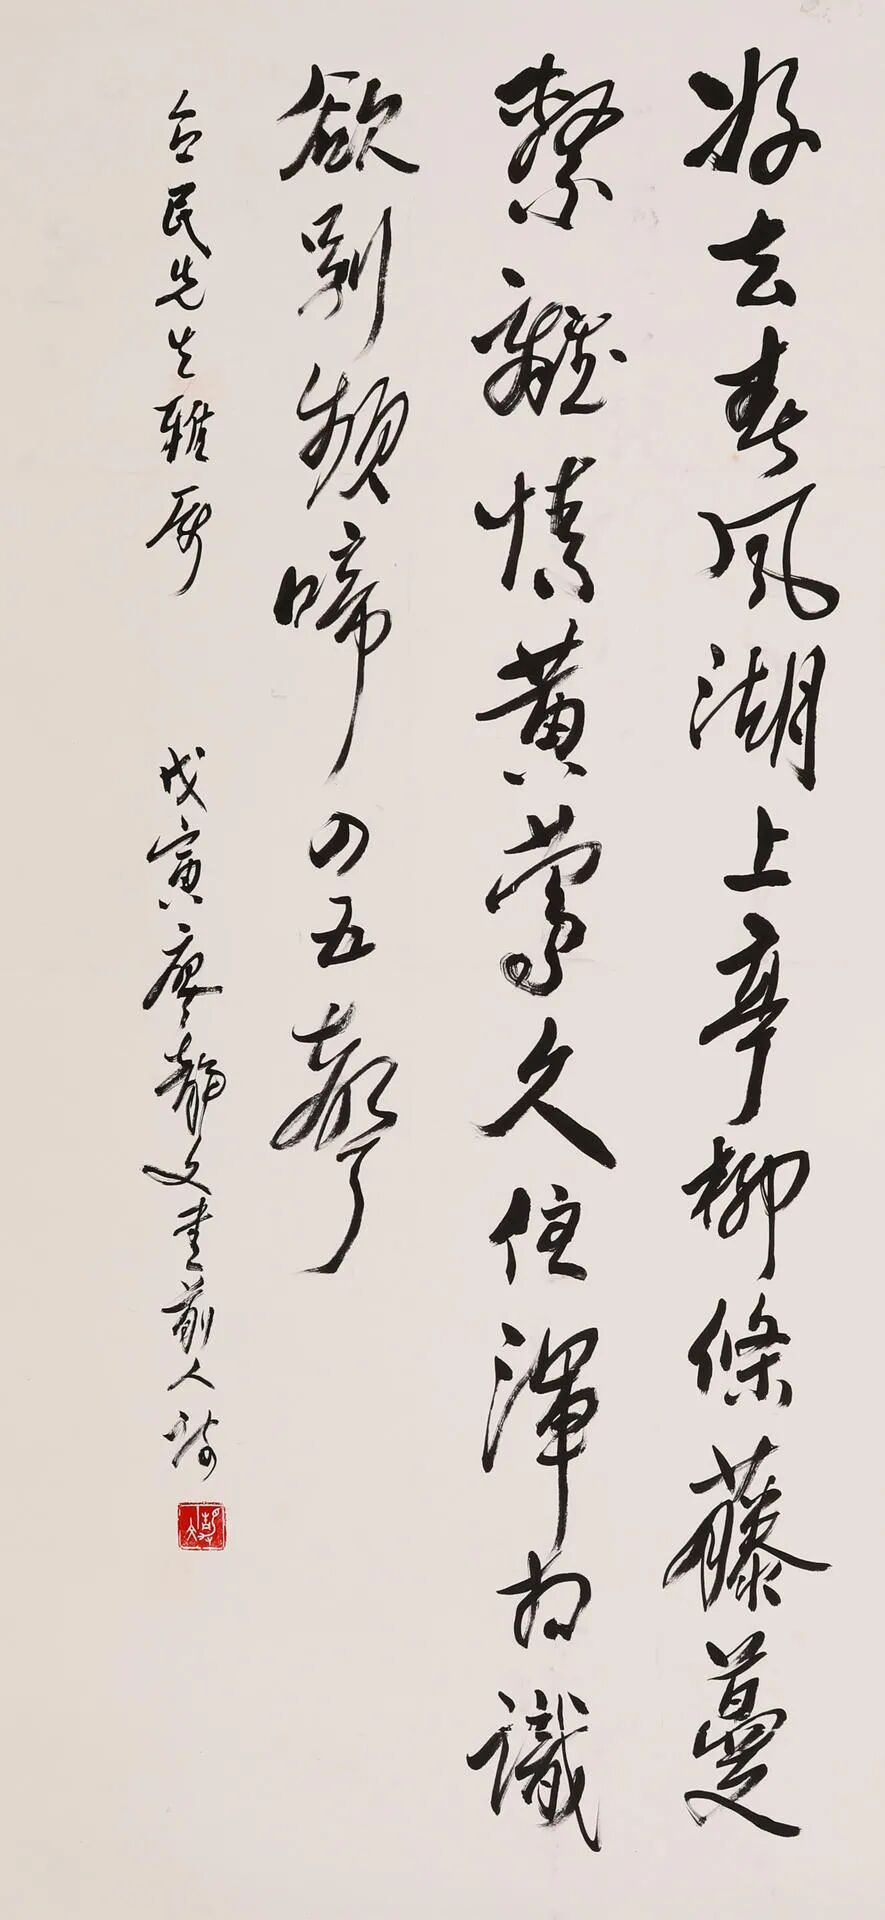 好去春風湖上亭柳條藤蔓
繫離情黄鶯久住渾相識
欲别頻啼四五聲
民先生雅属
戊寅廖静文書前人詩